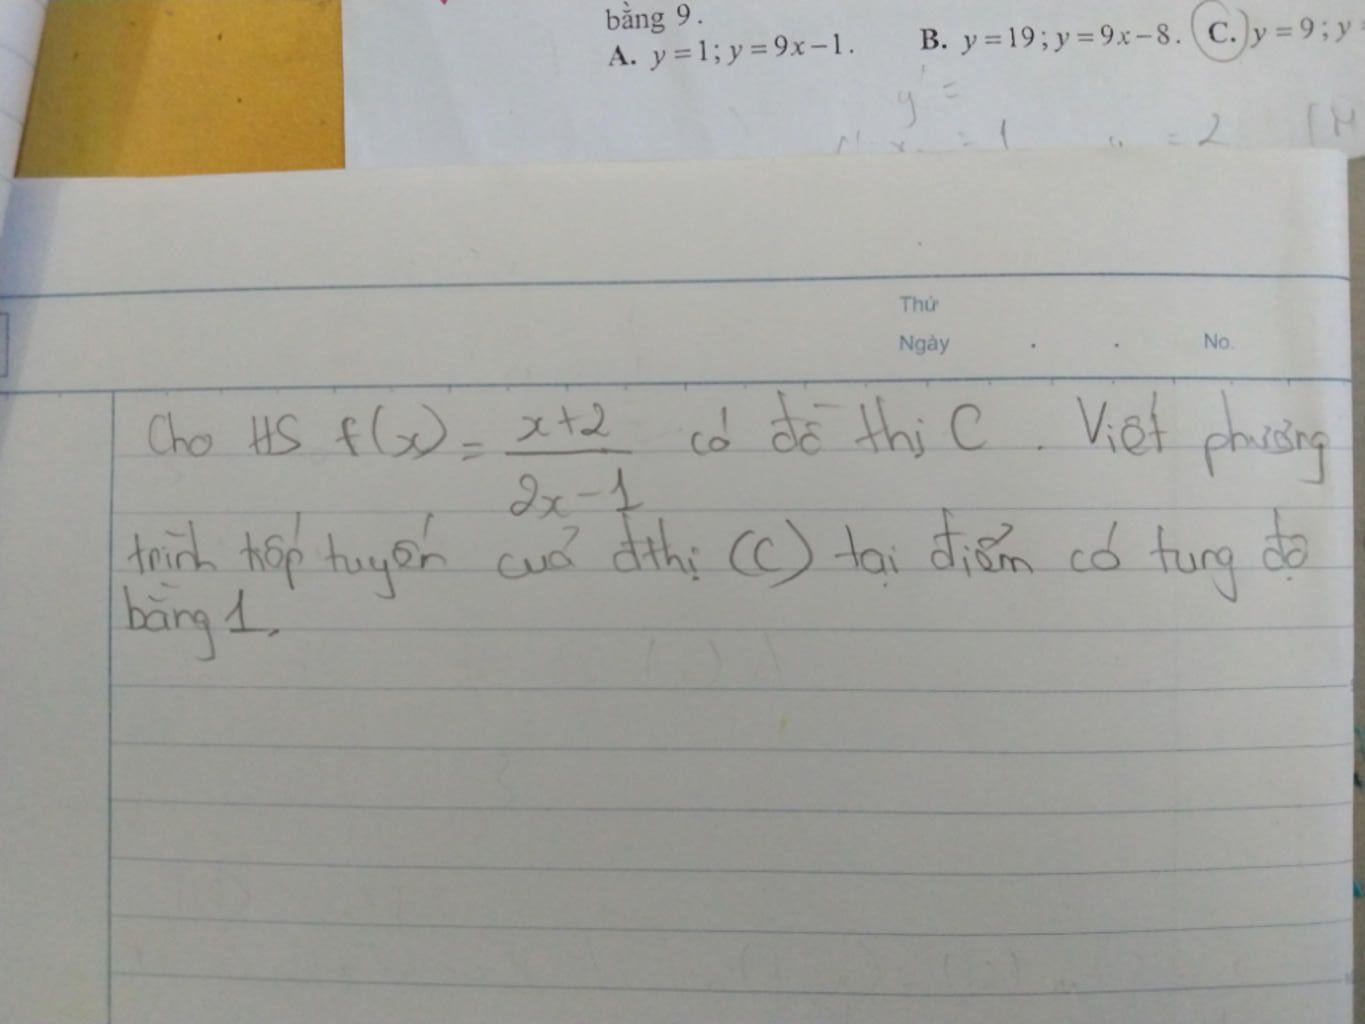 bằng 9.
A. y=1; y=9x−1. B. y=19; y=9x−8. C. y=9; y
y' =
= 1 = 2 (M
Thứ
Ngày . . No.
Cho HS f(x) = \frac{x+2}{2x-1} có đồ thị C. Viết phương
trình tiếp tuyến của đthị (C) tại điểm có tung độ
bằng 1.